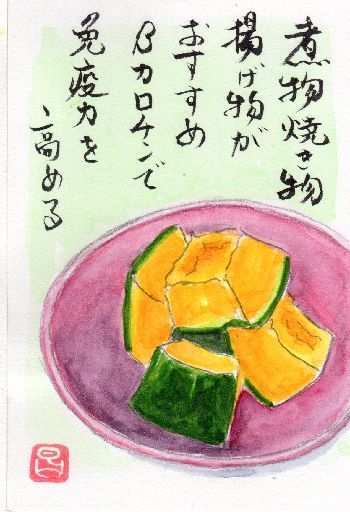 煮物焼き物
揚げ物が
おすすめ
βカロケンで
免疫力を
高める